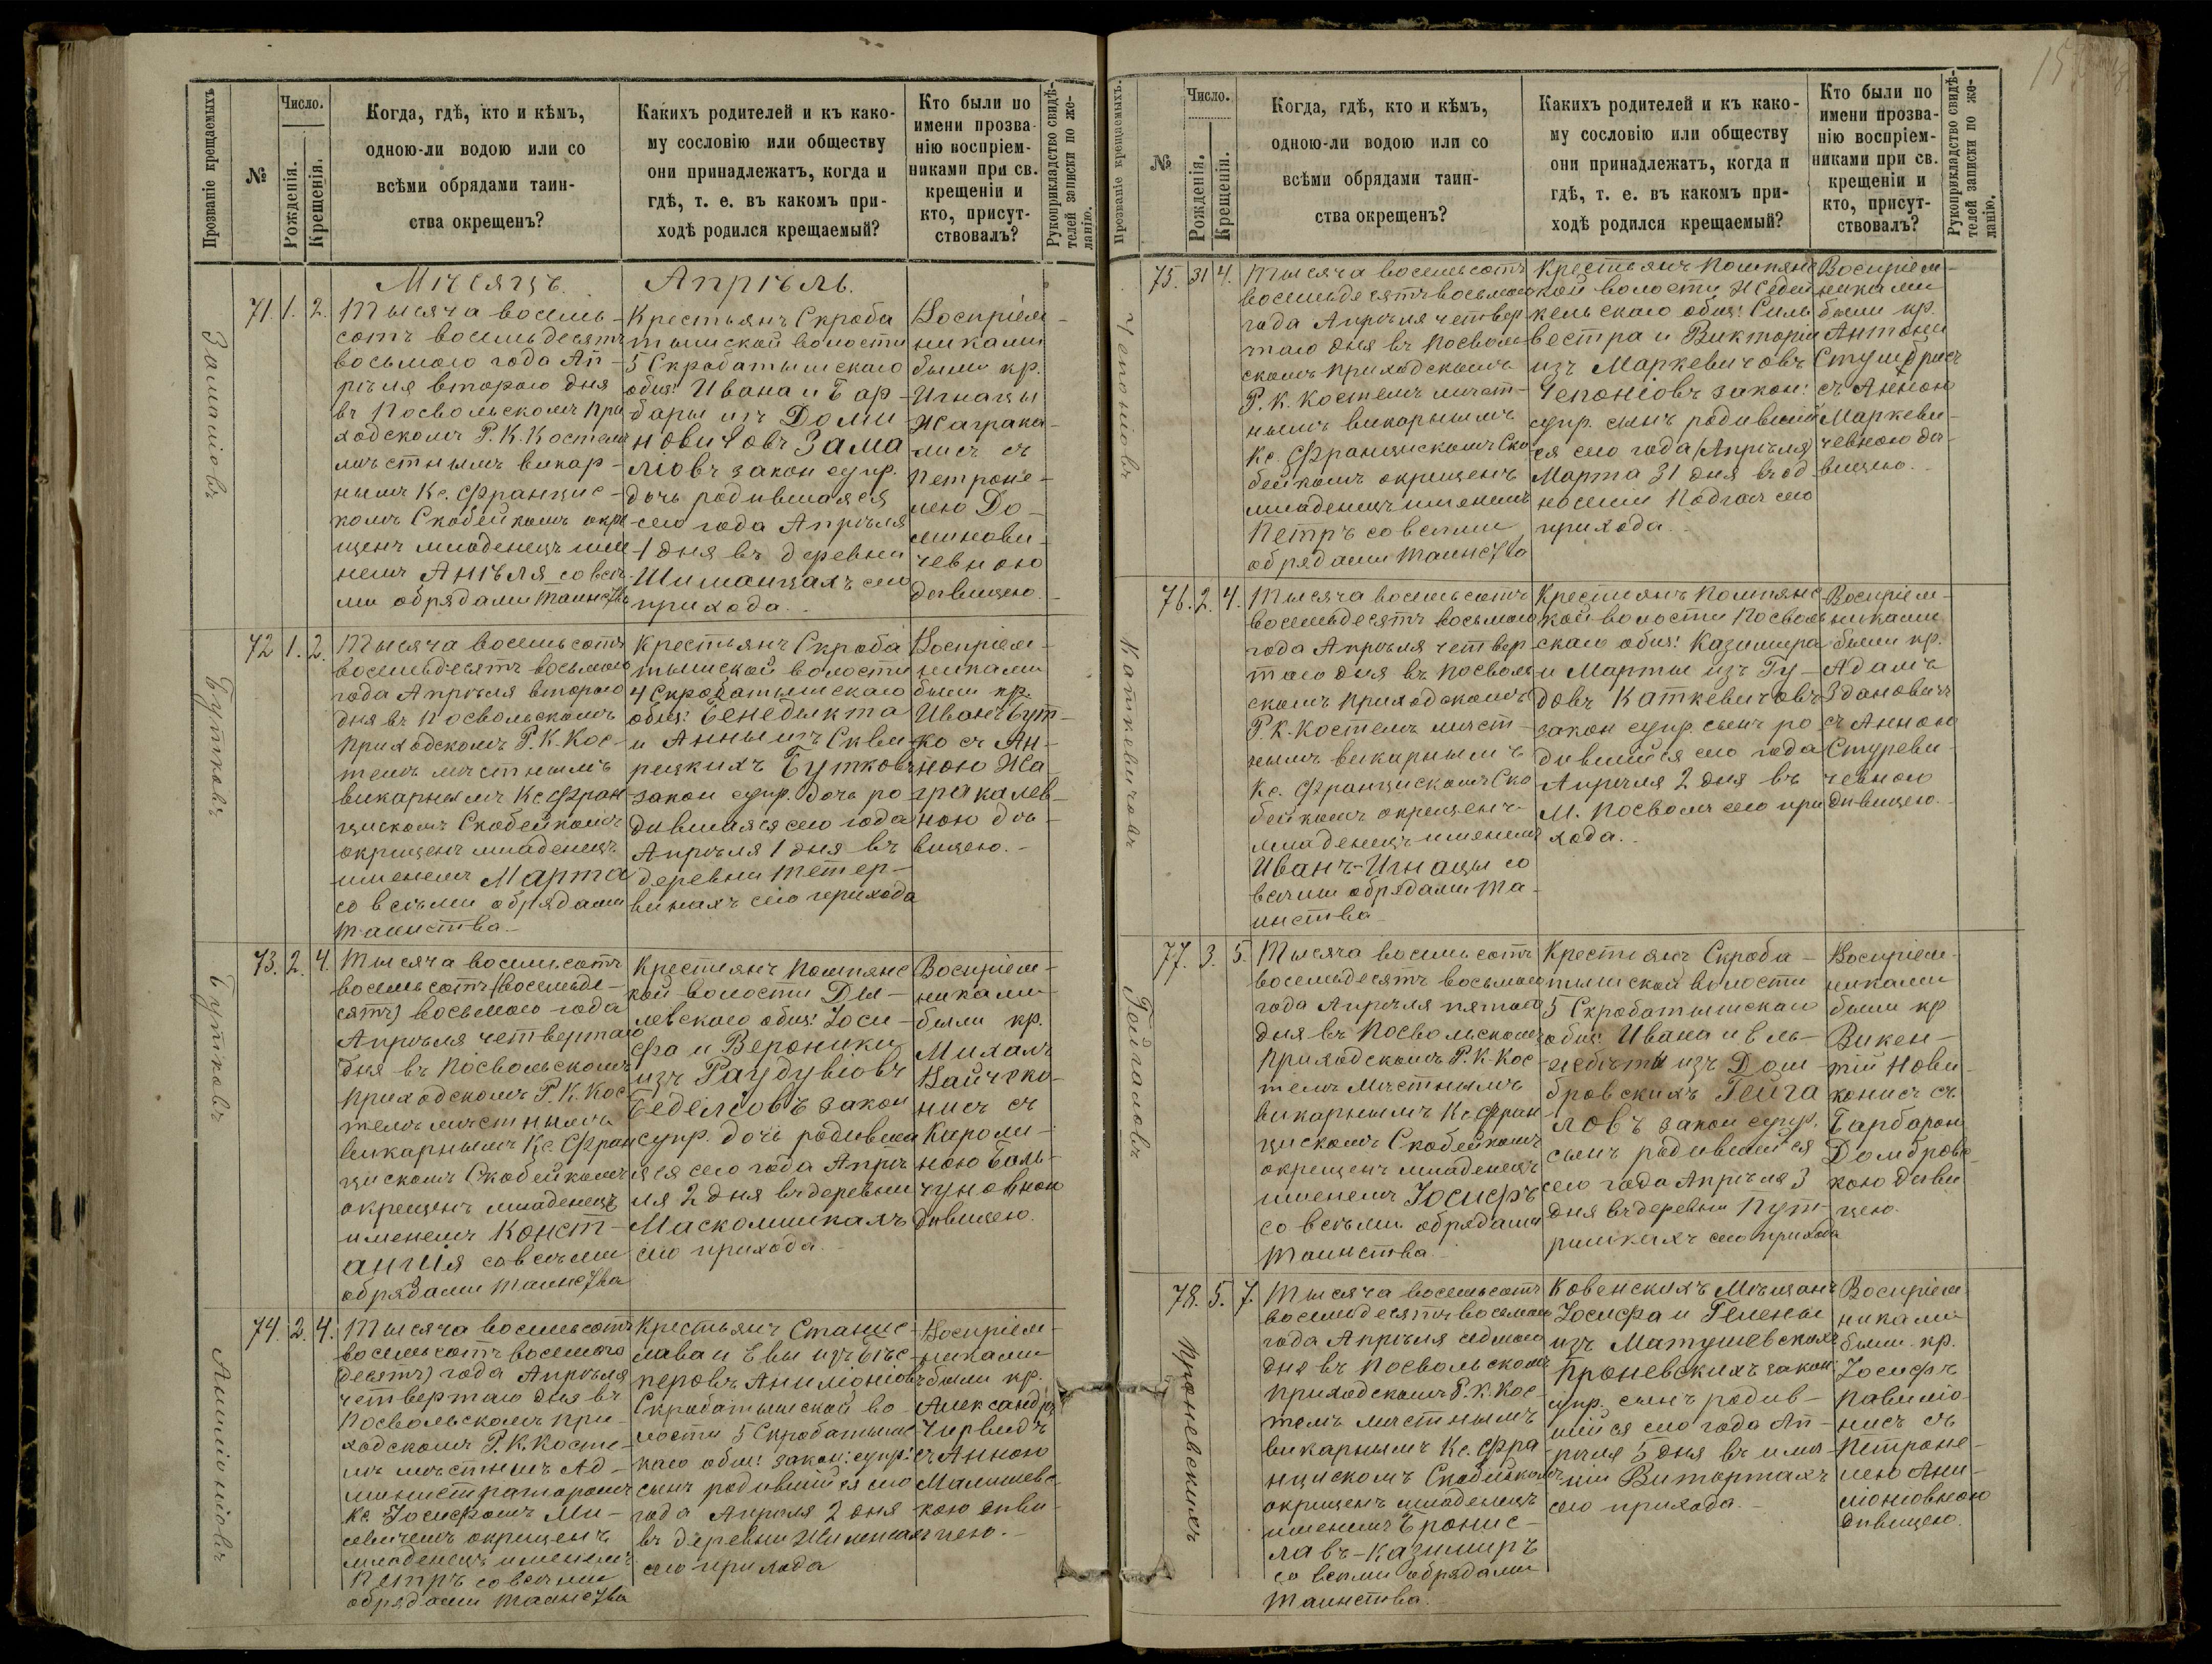 Прозваніе крещаемыхъ
№
Число.
Рожденія.
Крещенія.
Когда, гдѣ, кто и кѣмъ,
одною-ли водою или со
всѣми обрядами таин-
ства окрещенъ?
Какихъ родителей и къ како-
му сословію или обществу
они принадлежатъ, когда и
гдѣ, т. е. въ какомъ при-
ходѣ родился крещаемый?
Кто были по
имени прозва-
нію воспріем-
никами при св.
крещеніи и
кто, присут-
ствовалъ?
Рукоприкладство свидѣ-
телей записки по же-
ланію.
Мѣсяцъ Апрѣль.
71. 1. 2.
Тысяча восемь-
сотъ восемьдесятъ
восьмого года Ап-
рѣля второго дня
въ Посвольскомъ При
ходскомъ Р. К. Костелѣ
мѣстнымъ викар-
нымъ Кс. Францис-
комъ Скобейкомъ окре
щенъ младенецъ име
немъ Анѣля со всѣ-
ми обрядами таинства
Крестьянъ Скроба
тышской волости
5 Скробатышскаго
общ: Ивана и Бар-
бары изъ Доми
новичовъ Зама
ліовъ закон супр.
дочь родившаяся
сего года Апрѣля
1 дня въ деревни
Шиманцахъ сего
прихода.
Воспріем-
никами
были кр.
Игнацы
Жаграка-
лисъ съ
Петроне-
лею До-
минови-
чевною
дѣвицею.
Замаліовъ
72 1. 2.
Тысяча восемьсотъ
восемьдесятъ восьмого
года Апрѣля второго
дня въ Посвольскомъ
Приходскомъ Р. К. Кос-
телѣ мѣстнымъ
викарнымъ Кс Фран
цискомъ Скобейкомъ
окрещенъ младенецъ
именемъ Марта
со всѣми обрядами
таинства
Крестьянъ Скроба
тышской волости
4 Скробатышскаго
общ: Бенедыкта
и Анны изъ Скви-
рецкихъ Бутковъ
закон супр. дочь ро
дившаяся сего года
Апрѣля 1 дня въ
деревни Тетер-
винахъ сего прихода
Воспріем-
никами
были кр.
Иванъ Бут-
ко съ Ан-
ною Жа-
гракалев-
ною дѣ-
вицею.
Бутковъ
73. 2. 4.
Тысяча восемьсотъ
восемьсотъ (восемьде-
сятъ) восьмого года
Апрѣля четвертаго
дня въ Посвольскомъ
Приходскомъ Р. К. Кос
телѣ мѣстнымъ
викарнымъ Кс. Фран
цискомъ Скобейкомъ
окрещенъ младенецъ
именемъ Конст-
анція со всѣми
обрядами таинства
Крестьянъ Помпянс
кой волости Ды-
левскаго общ: Іоси-
фа и Вероники
изъ Раудувіовъ
Беделісовъ закон
супр. дочь родивша
яся сего года Апрѣ
ля 2 дня въ деревни
Масколишкахъ
сего прихода.
Воспріем-
никами
были кр.
Михалъ
Вайчеко-
нисъ съ
Кароли-
ною Баль-
чуновною
дѣвицею.
Бутковъ
74. 2. 4.
Тысяча восемьсотъ
восемьсотъ восьмого
(десятъ) года Апрѣля
четвертаго дня въ
Посвольскомъ При-
ходскомъ Р. К. Косте-
лѣ мѣстнымъ Ад-
министраторомъ
Кс. Іосифомъ Ми-
севичемъ окрещенъ
младенецъ именемъ
Петръ со всѣми
обрядами таинства
Крестьянъ Станис-
лава и Евы изъ Бѣс-
перовъ Анимоніовъ
Скробатышской во-
лости 5 Скробатышс
каго общ: закон: супр:
сынъ родившійся сего
года Апрѣля 2 дня
въ деревни
сего прихода
Воспріем-
никами
были кр.
Александръ
Чирвидъ
съ Анною
Малишевс-
кою дѣви-
цею.
Анимоніовъ
Прозваніе крещаемыхъ.
№
Число.
Рожденія.
Крещенія.
Когда, гдѣ, кто и кѣмъ,
одною-ли водою или со
всѣми обрядами таин-
ства окрещенъ?
Какихъ родителей и къ како-
му сословію или обществу
они принадлежатъ, когда и
гдѣ, т. е. въ какомъ при-
ходѣ родился крещаемый?
Кто были по
имени прозва-
нію воспріем-
никами при св.
крещеніи и
кто, присут-
ствовалъ?
Рукоприкладство свидѣ-
телей записки по же-
ланію.
75. 31 4.
Тысяча восемьсотъ
восемьдесятъ восьмого
года Апрѣля четвер
таго дня въ Посволь
скомъ Приходскомъ
Р. К. Костелѣ мѣст-
нымъ викарнымъ
Кс. Францискомъ Ско
бейкомъ окрещенъ
младенецъ именемъ
Петръ со всѣми
обрядами таинства
Крестьянъ Помпянс
кой волости Жедей
кельскаго общ: Силь
вестра и Викторіи
изъ Маркевичовъ
Чепоніовъ закон:
супр. сынъ родившій
ся сего года (Апрѣля)
Марта 31 дня въ од
носеліи Подгая сего
прихода.
Воспріем-
никами
были кр.
Антони
Стумбрисъ
съ Анною
Маркеви-
чевною дѣ-
вицею.
Чепоніовъ
76. 2. 4.
Тысяча восемьсотъ
восемьдесятъ восьмого
года Апрѣля четвер
таго дня въ Посволь
скомъ Приходскомъ
Р. К. Костелѣ мѣст-
нымъ викарнымъ
Кс. Францискомъ Ско
бейкомъ окрещенъ
младенецъ именемъ
Иванъ-Игнацы со
всѣми обрядами та-
инства
Крестьянъ Помпянс
кой волости Посволь
скаго общ: Казимира
и Марты изъ Гу-
довъ Каткевичовъ
закон супр. сынъ ро
дившійся сего года
Апрѣля 2 дня въ
М. Посволѣ сего при
хода.
Воспріем-
никами
были кр.
Адамъ
Здановичъ
съ Анною
Стуреви-
чевною
дѣвицею.
Каткевичовъ
77. 3. 5.
Тысяча восемьсотъ
восемьдесятъ восьмого
года Апрѣля пятаго
дня въ Посвольскомъ
Приходскомъ Р. К. Кос
телѣ Мѣстнымъ
викарнымъ Кс Фран
цискомъ Скобейкомъ
окрещенъ младенецъ
именемъ Іосифъ
со всѣми обрядами
таинства.
Крестьянъ Скроба-
тышской волости
5 Скробатышскаго
общ: Ивана и Эль-
жбеты изъ Дом
бровскихъ Гейга
ловъ закон супр.
сынъ родившійся
сего года Апрѣля 3
дня въ деревни Пут-
ришкахъ сего прихода
Воспріем-
никами
были кр
Викен-
тій Нови-
конисъ съ
Барбарою
Домбровс-
кою дѣви
цею.
Гейгаловъ
78. 5. 7.
Тысяча восемьсотъ
восемьдесятъ восьмого
года Апрѣля седмого
дня въ Посвольскомъ
Приходскомъ Р. К. Кос-
телѣ мѣстнымъ
викарнымъ Кс. Фра
нцискомъ Скобейкомъ
окрещенъ младенецъ
именемъ Бронис-
лавъ-Казимиръ
со всѣми обрядами
таинства.
Ковенскихъ Мѣщанъ
Іосифа и Гелены
изъ Матушевскихъ
Проневскихъ закон:
супр. сынъ родив-
шійся сего года Ап-
рѣля 5 дня въ имѣ-
ніи Витортахъ
сего прихода.
Воспріем
никами
были кр.
Іосифъ
Павиліо-
нисъ съ
Петроне-
лею Ани-
міоновною
дѣвицею.
Проневскихъ